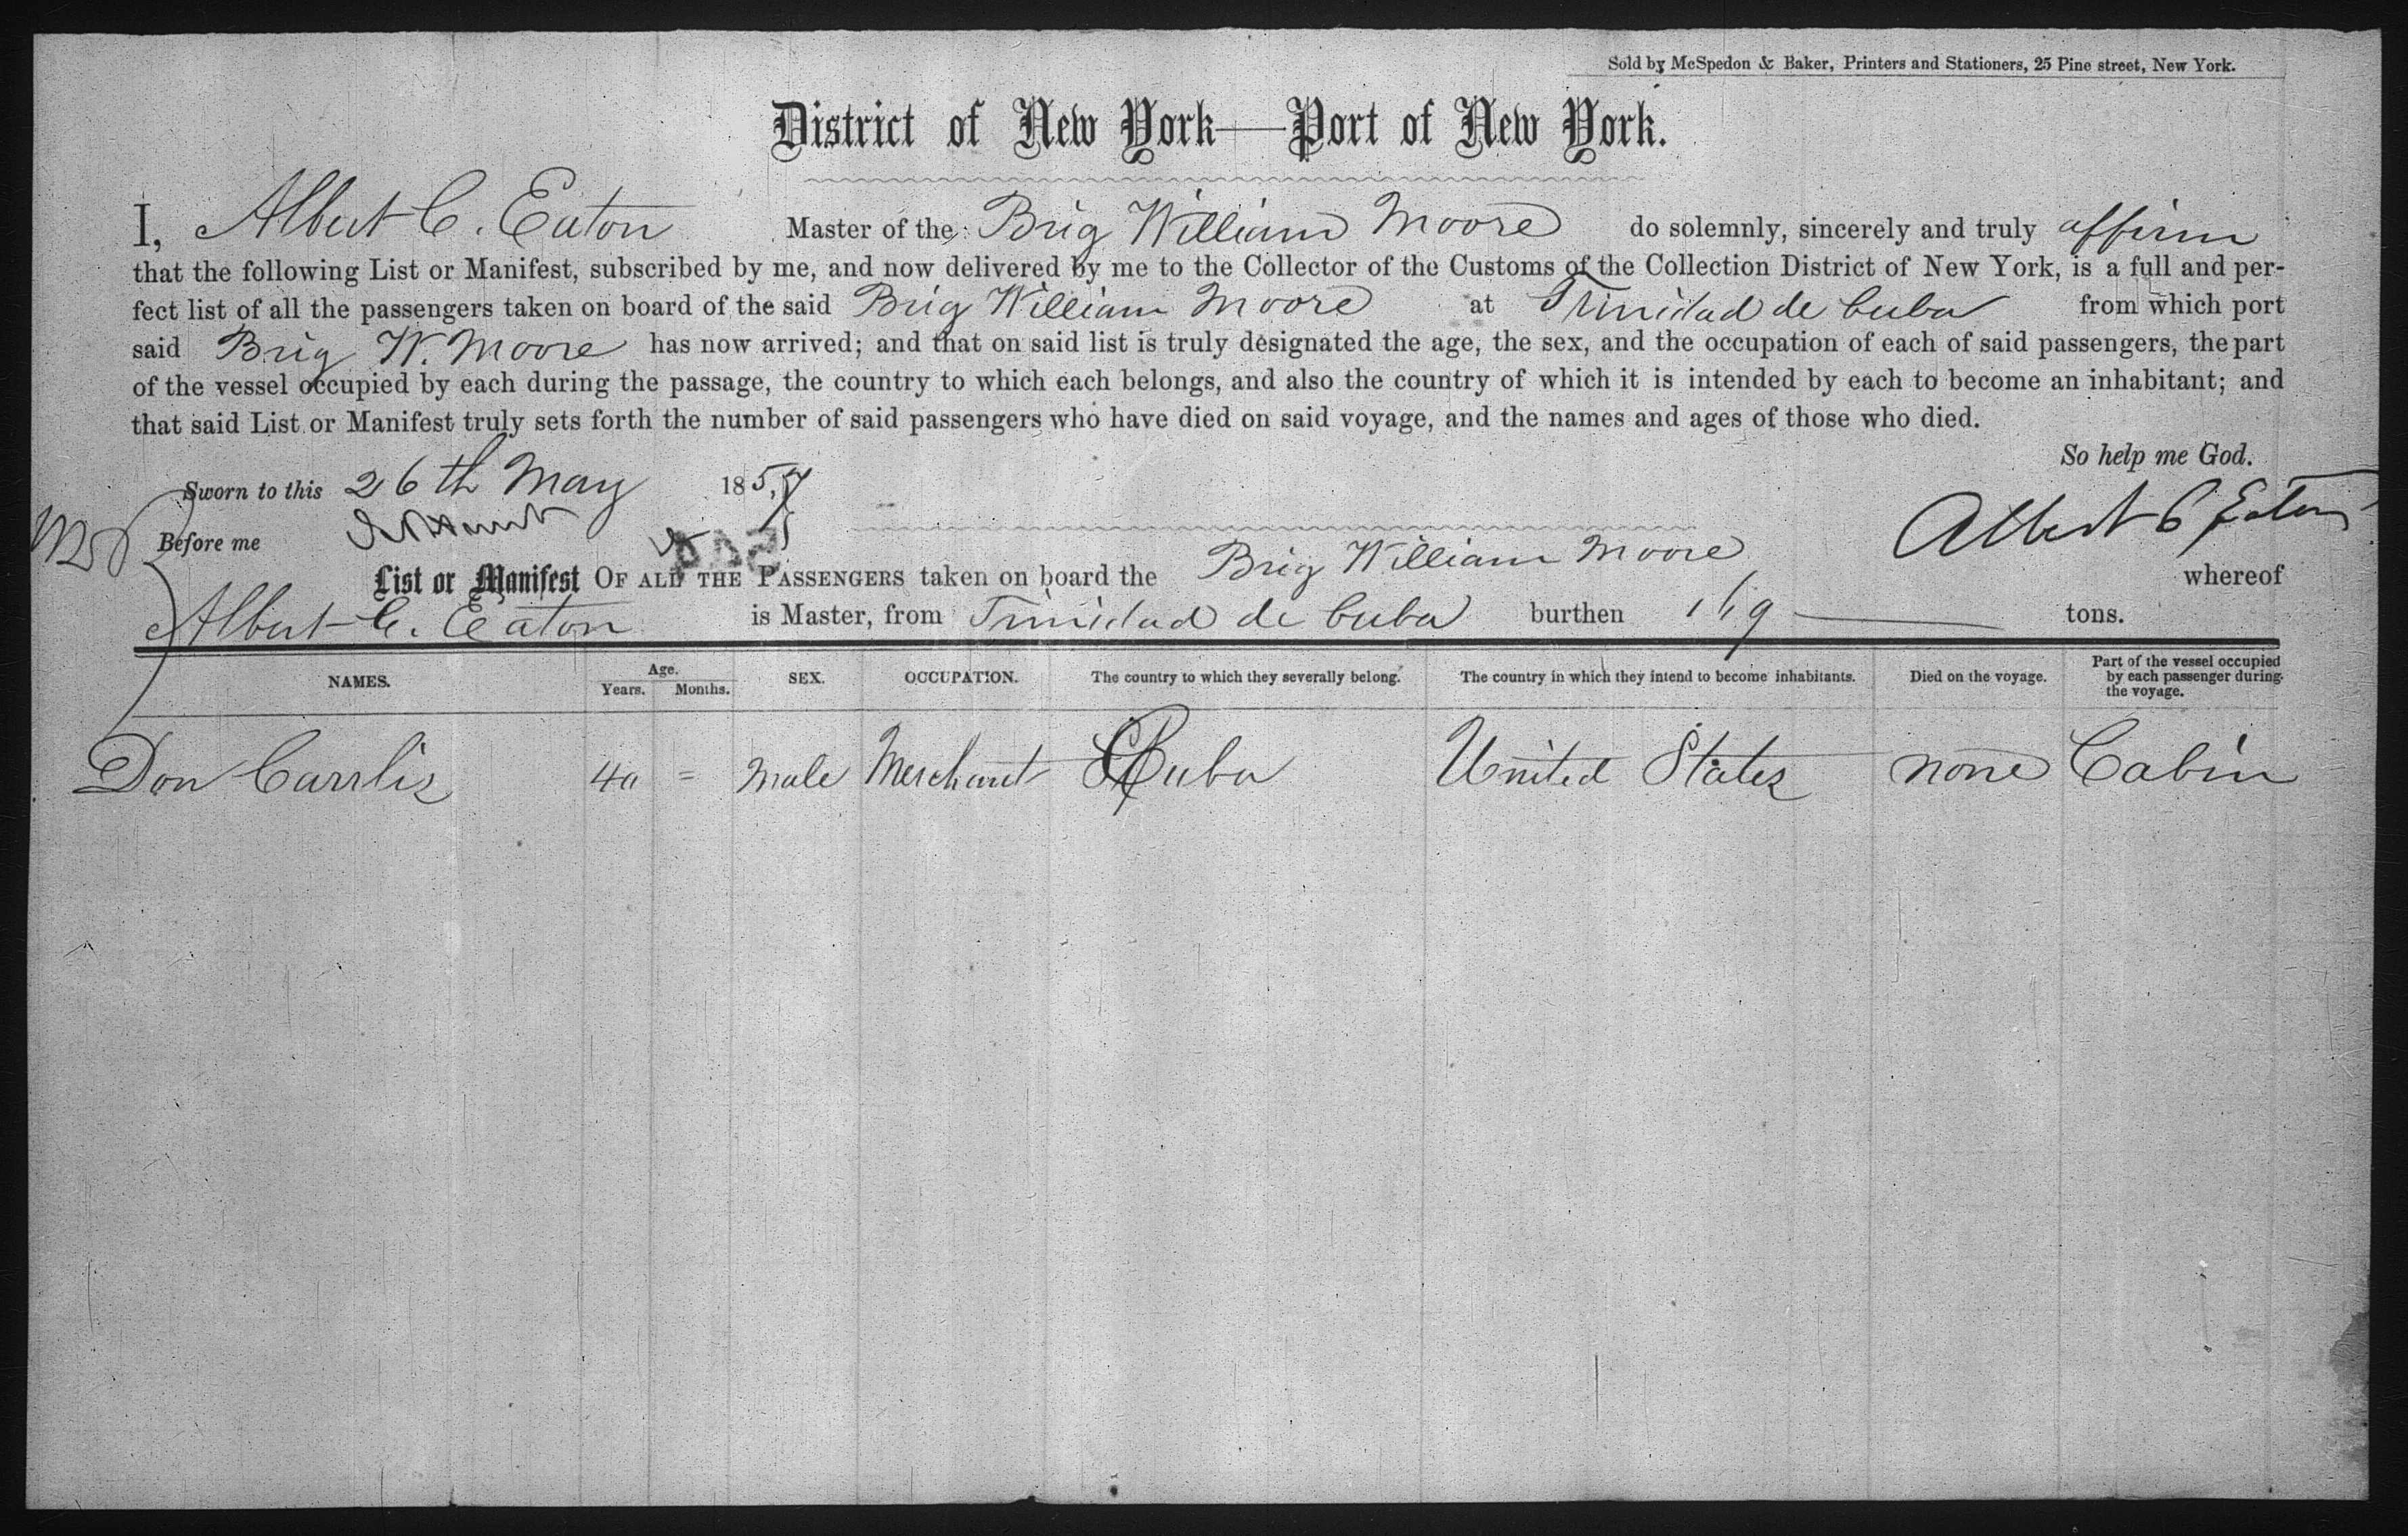 Sold by McSpedon & Baker, Printers and Stationers, 25 Pine street, New York.
District of New York—Port of New York.
I, Albert C. Eaton Master of the Brig William Moore do solemnly, sincerely and truly affirm
that the following List or Manifest, subscribed by me, and now delivered by me to the Collector of the Customs of the Collection District of New York, is a full and per-
fect list of all the passengers taken on board of the said Brig William Moore at Trinidad de Cuba from which port
said Brig W. Moore has now arrived; and that on said list is truly designated the age, the sex, and the occupation of each of said passengers, the part
of the vessel occupied by each during the passage, the country to which each belongs, and also the country of which it is intended by each to become an inhabitant; and
that said List or Manifest truly sets forth the number of said passengers who have died on said voyage, and the names and ages of those who died.
So help me God.
Sworn to this 26th May 1857
Before me
Albert C Eaton
List or Manifest OF ALL THE PASSENGERS taken on board the Brig William Moore whereof
Albert C. Eaton is Master, from Trinidad de Cuba burthen tons.
NAMES. Age. Years. Months. SEX. OCCUPATION. The country to which they severally belong. The country in which they intend to become inhabitants. Died on the voyage. Part of the vessel occupied by each passenger during the voyage.
Don Carrlis 40 = Male Merchant Cuba United States none Cabin